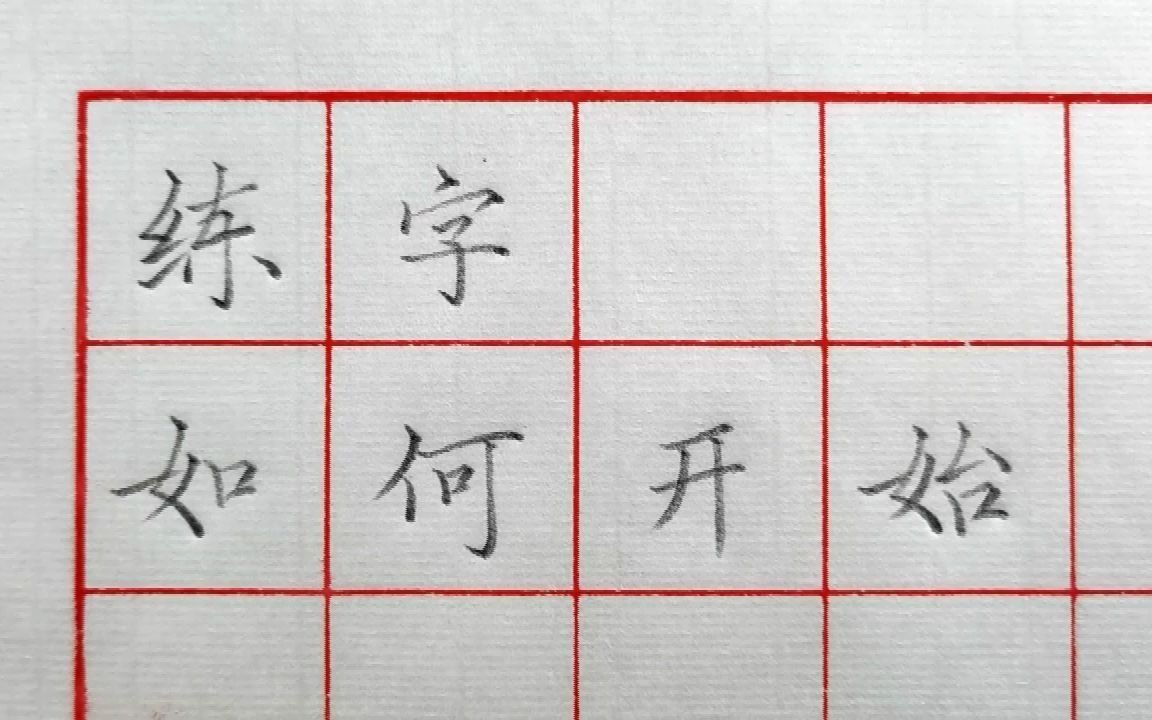 练字
如何开始